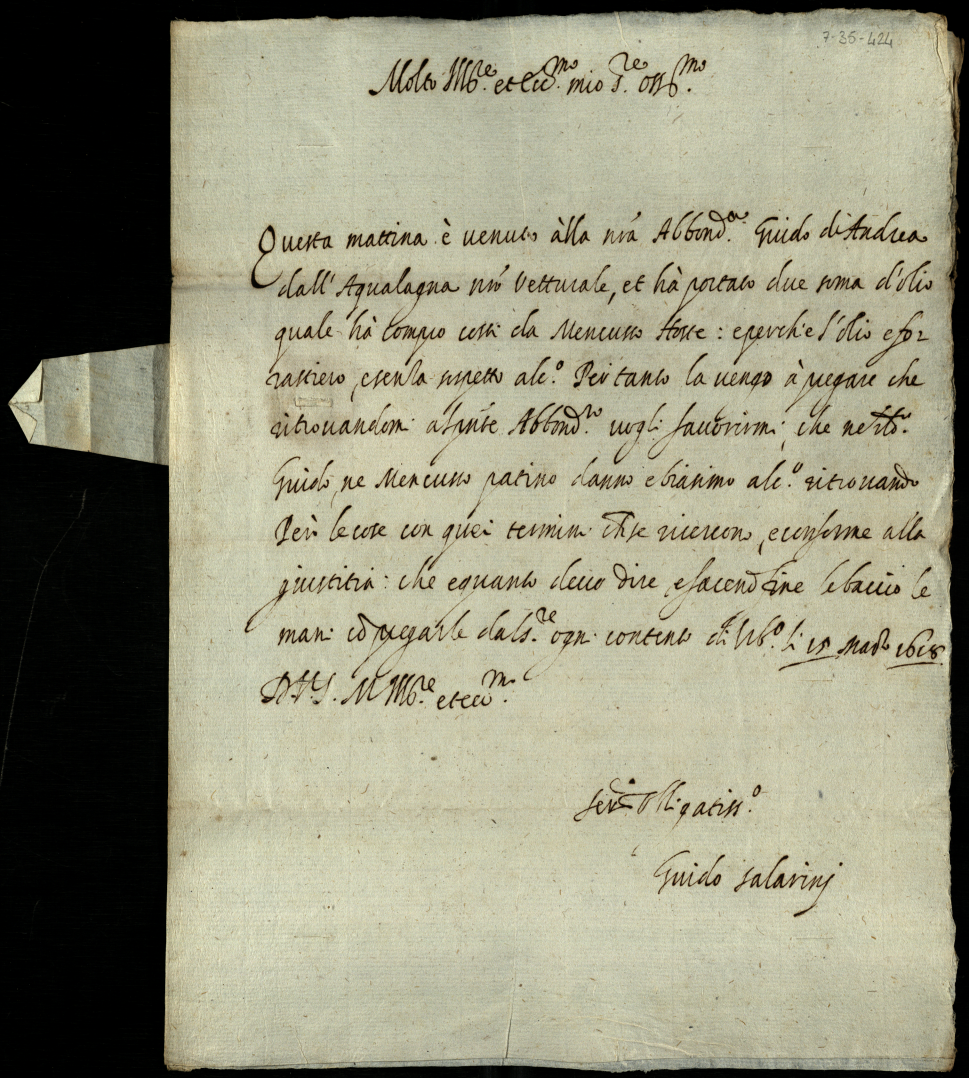 7-35-424
Molto Ill.re et Ecc.mo mio S.re oss.mo
Questa mattina è venuto àlla nr̃a Abbond.a Guido di Andrea
dall'Aqualagna nr̃o Vetturale, et hà portato due soma d'olio
quale hà compro costi da Mencuccio Hoste: e perche l'olio e fo=
rastiero, e senza sospetto alc.o Per tanto la vengo à pregare che
ritrovandomi Abbond.ro vogli favorirmi, che ne
Guido, ne Mencuccio patino danno e biasimo alc.o ritrovando
Però le cose con quei termini che se ricercono, e conforme alla
giustitia: che e quanto devo dire, e facendo fine le baccio le
mani cõ pregarle dal S.re ogni contento di Urb.o li 15 1618
D V. S. M Ill.re et Ecc.ma
Ser.re Obligatiss.o
Guido Salarinj